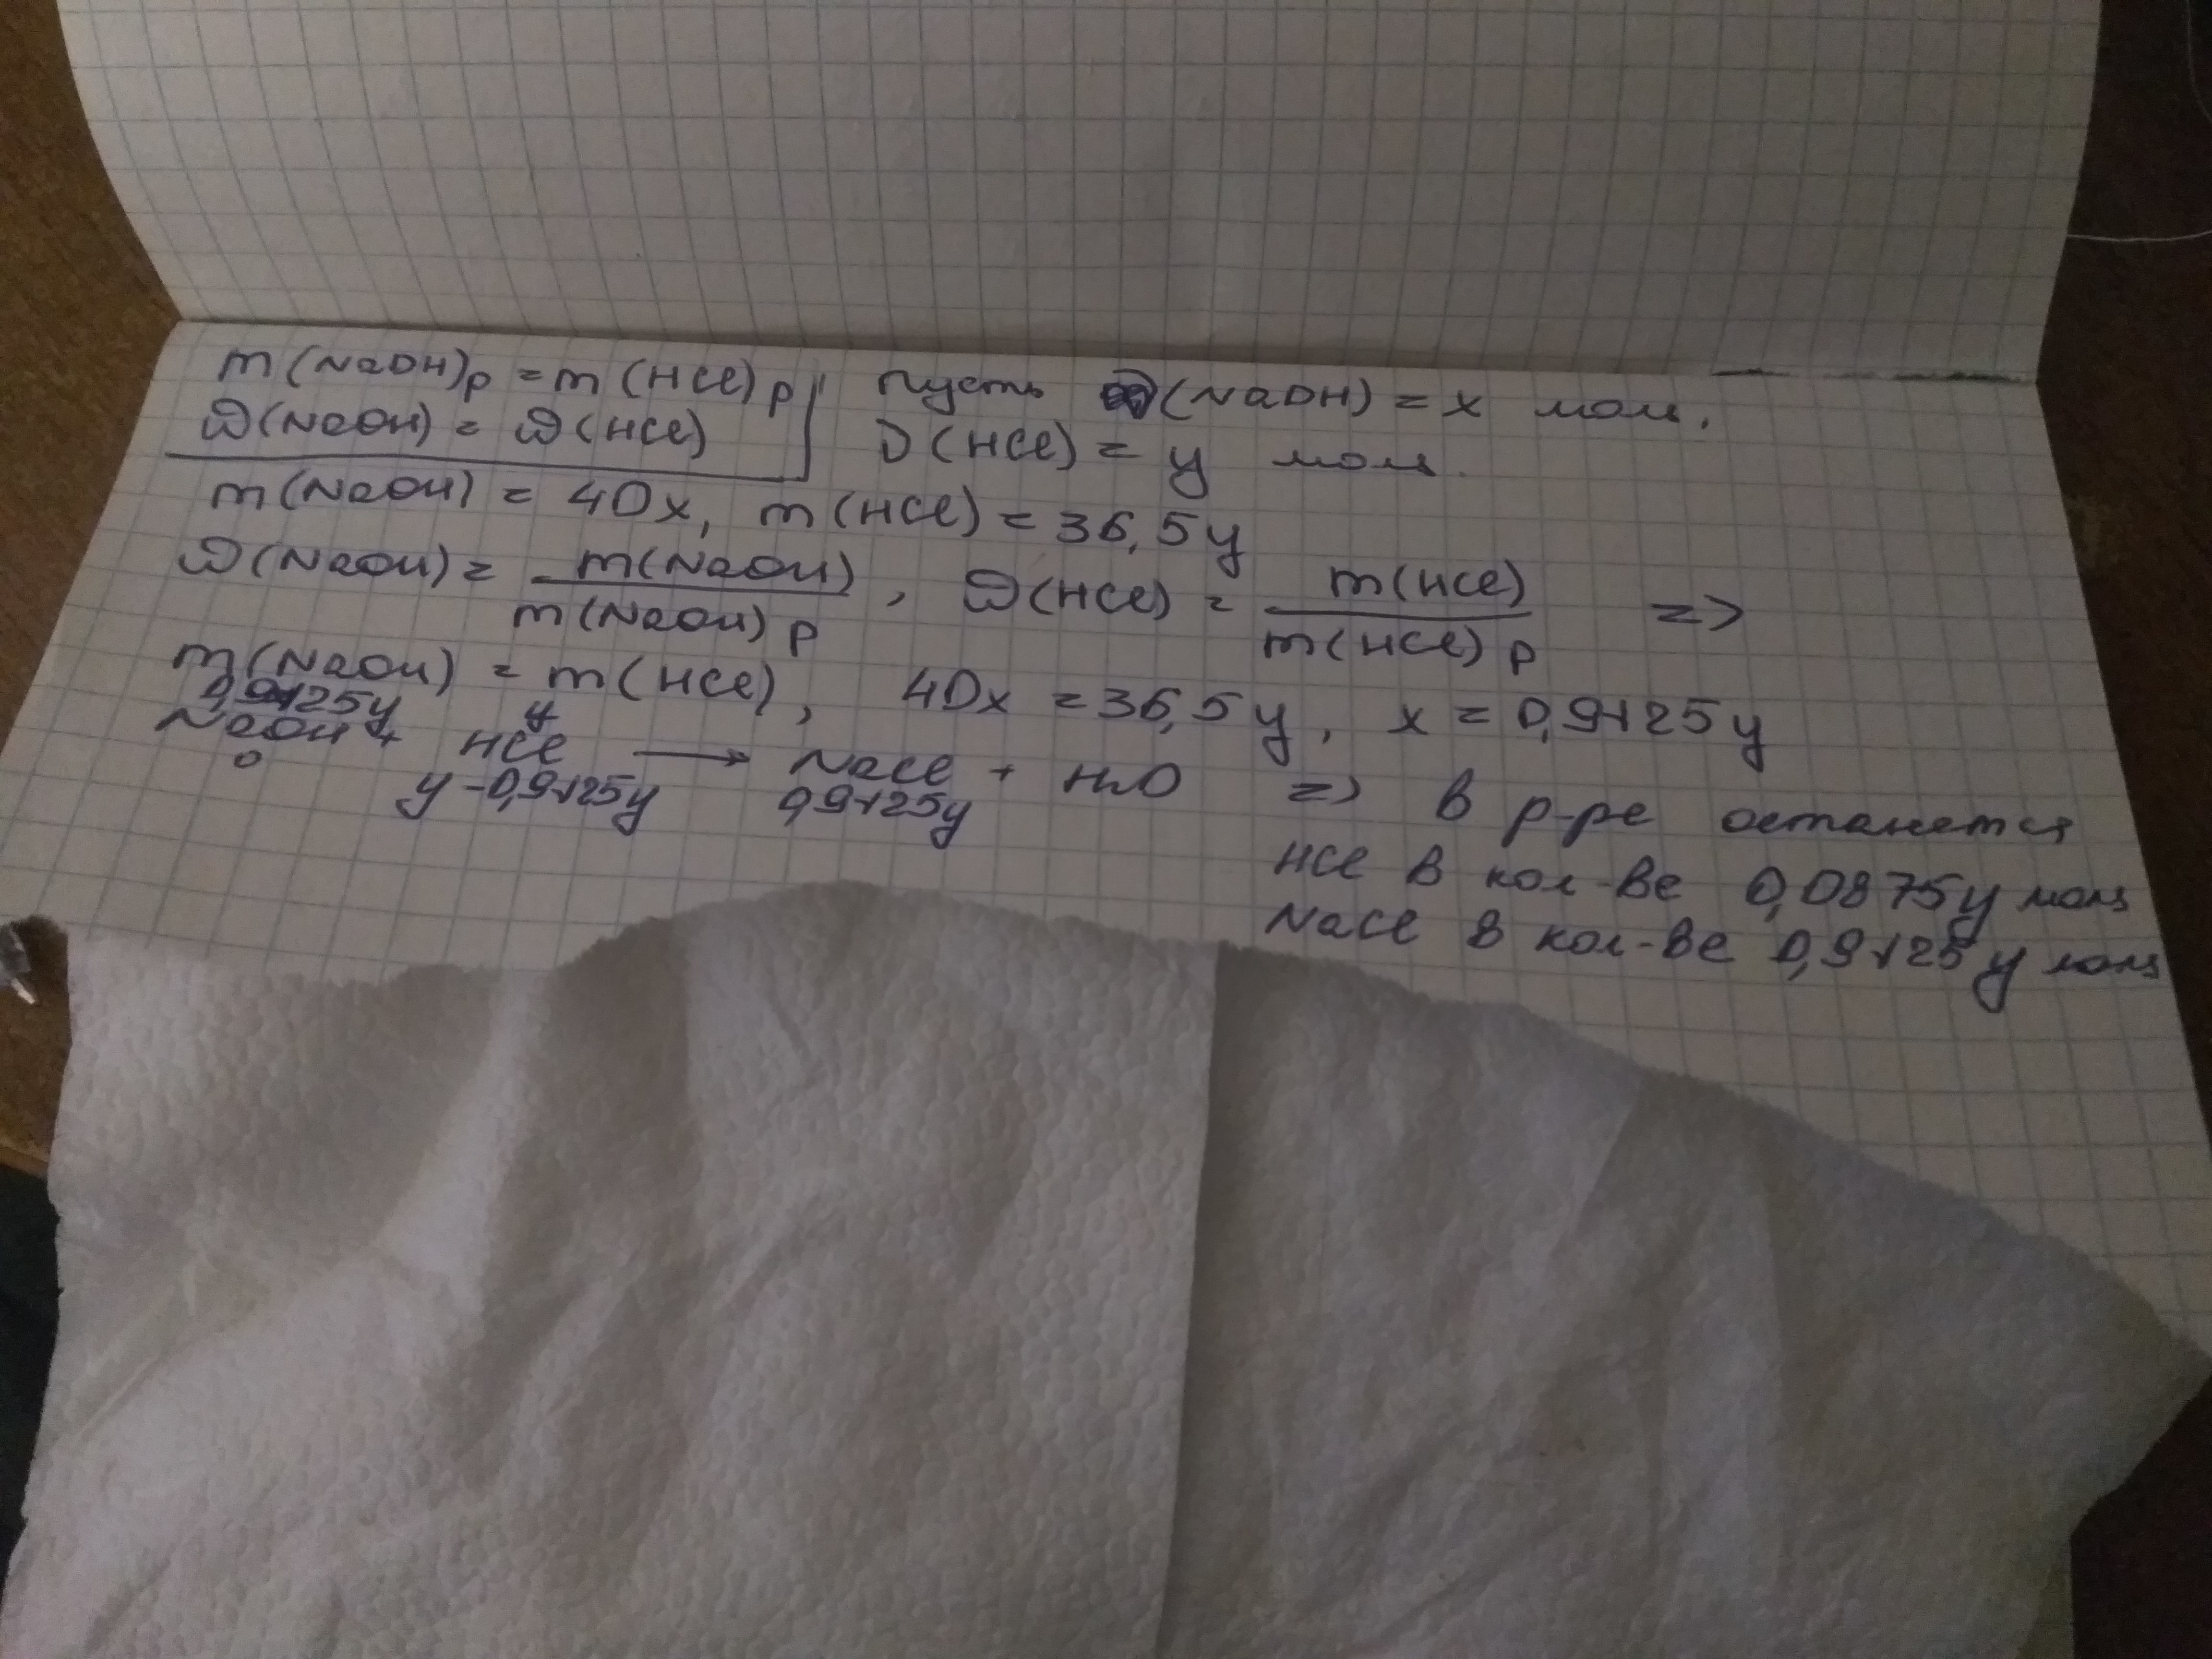 m(NaOH)р = m(HCl)р
ω(NaOH) = ω(HCl)
Пусть ν(NaOH) = x моль,
ν(HCl) = y моль.
m(NaOH) = 40x, m(HCl) = 36,5y
ω(NaOH) = m(NaOH) / m(NaOH)р , ω(HCl) = m(HCl) / m(HCl)р =>
m(NaOH) = m(HCl), 40x = 36,5y, x = 0,9125y
0,9125y y
NaOH + HCl → NaCl + H2O => в р-ре останется
0 y-0,9125y 0,9125y
HCl в кол-ве 0,0875y моль
NaCl в кол-ве 0,9125y моль